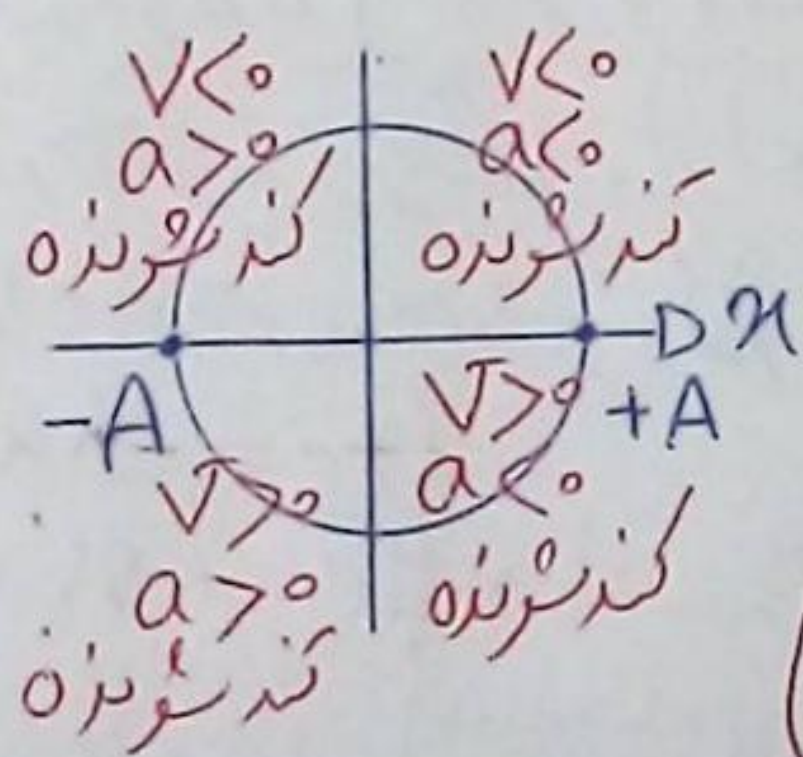 V<0
a>0
کندشونده
V<0
a<0
تندشونده
x
-A
+A
V>0
a>0
تندشونده
V>0
a<0
کندشونده